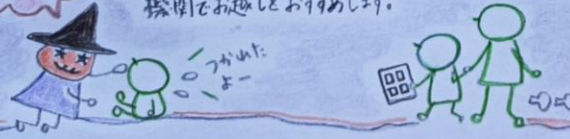 機関でお越しをおすすめします。
つかれた
よー